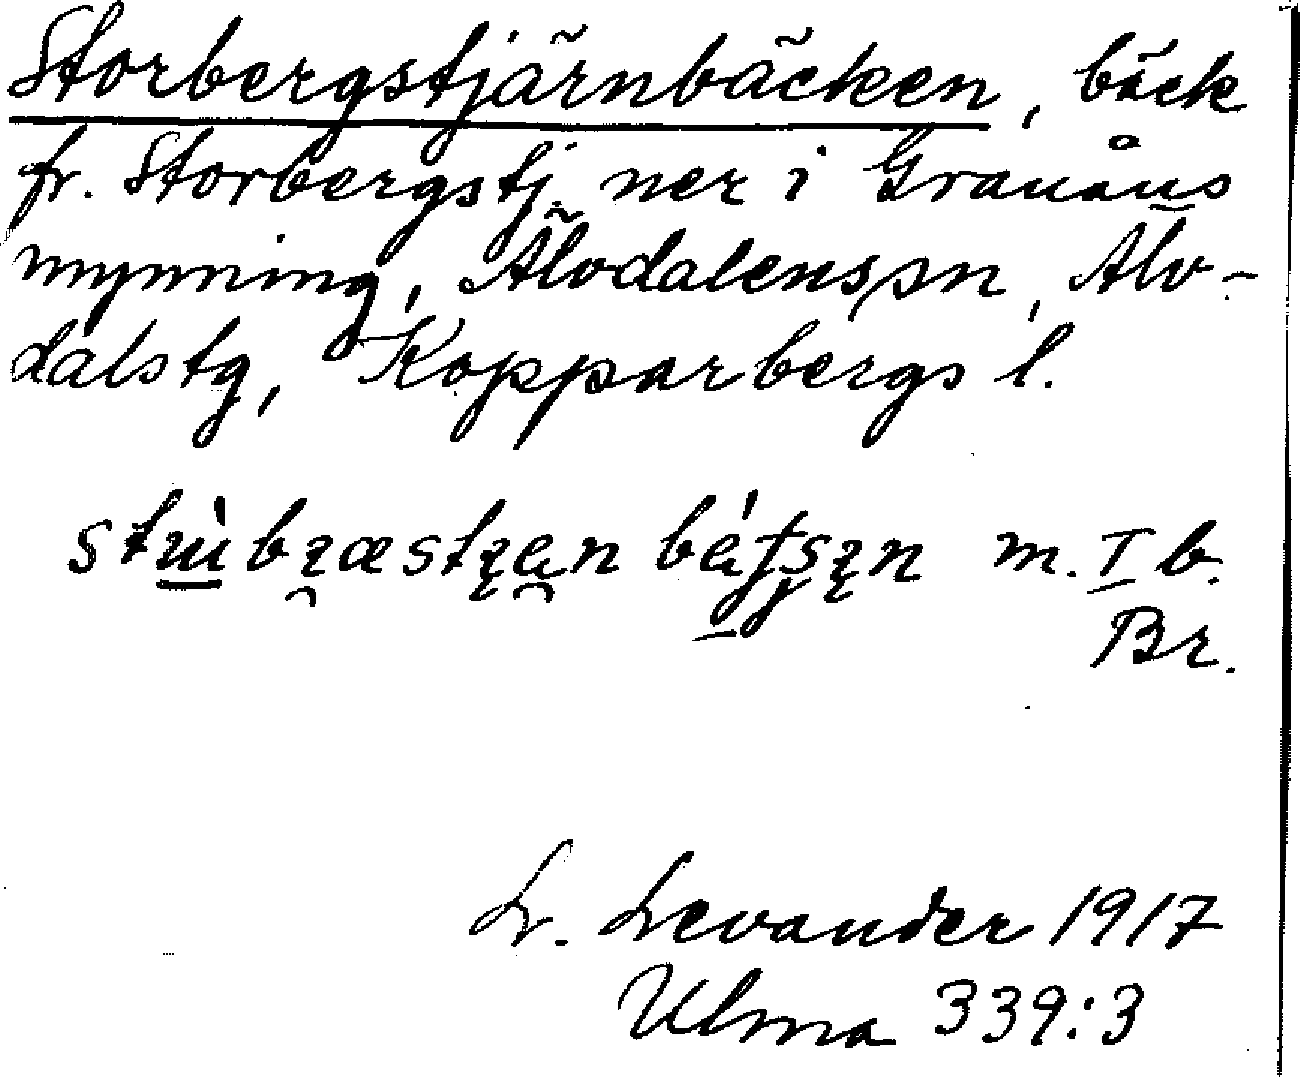 Storbergstjärnbäcken, bäck
fr. Storbergstj. ner i Granåns
mynning, Älvdalens sn, Älv-
dals tg, Kopparbergs l.
m. I b.
Br.
L. Levander 1917
Ulma 339:3